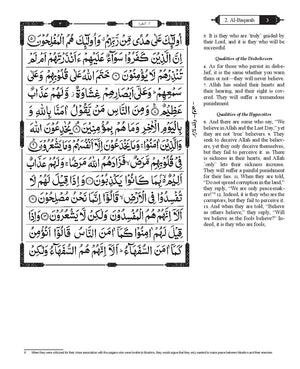 2. Al-Baqarah 3
اُولٰٓئِكَ عَلٰى هُدًى مِّنْ رَّبِّهِمْ ۗ وَاُولٰٓئِكَ هُمُ الْمُفْلِحُوْنَ ۝٥
اِنَّ الَّذِيْنَ كَفَرُوْا سَوَآءٌ عَلَيْهِمْ ءَاَنْذَرْتَهُمْ اَمْ لَمْ
تُنْذِرْهُمْ لَا يُؤْمِنُوْنَ ۝٦ خَتَمَ اللّٰهُ عَلٰى قُلُوْبِهِمْ وَعَلٰى
سَمْعِهِمْ ۗ وَعَلٰٓى اَبْصَارِهِمْ غِشَاوَةٌ ۖ وَّلَهُمْ عَذَابٌ
عَظِيْمٌ ۝٧ وَمِنَ النَّاسِ مَنْ يَّقُوْلُ اٰمَنَّا بِاللّٰهِ وَ
بِالْيَوْمِ الْاٰخِرِ وَمَا هُمْ بِمُؤْمِنِيْنَ ۝٨ يُخٰدِعُوْنَ اللّٰهَ
وَالَّذِيْنَ اٰمَنُوْا ۚ وَمَا يَخْدَعُوْنَ اِلَّآ اَنْفُسَهُمْ وَمَا يَشْعُرُوْنَ ۝٩
فِيْ قُلُوْبِهِمْ مَّرَضٌ ۙ فَزَادَهُمُ اللّٰهُ مَرَضًا ۚ وَلَهُمْ عَذَابٌ
اَلِيْمٌ ۢ بِمَا كَانُوْا يَكْذِبُوْنَ ۝١٠ وَاِذَا قِيْلَ لَهُمْ لَا
تُفْسِدُوْا فِي الْاَرْضِ ۙ قَالُوْٓا اِنَّمَا نَحْنُ مُصْلِحُوْنَ ۝١١
اَلَآ اِنَّهُمْ هُمُ الْمُفْسِدُوْنَ وَلٰكِنْ لَّا يَشْعُرُوْنَ ۝١٢ وَاِذَا
قِيْلَ لَهُمْ اٰمِنُوْا كَمَآ اٰمَنَ النَّاسُ قَالُوْٓا اَنُؤْمِنُ
كَمَآ اٰمَنَ السُّفَهَآءُ ۗ اَلَآ اِنَّهُمْ هُمُ السُّفَهَآءُ وَلٰكِنْ
5. It is they who are ‘truly’ guided by
their Lord, and it is they who will be
successful.
Qualities of the Disbelievers
6. As for those who persist in disbe-
lief, it is the same whether you warn
them or not—they will never believe.
7. Allah has sealed their hearts and
their hearing, and their sight is cov-
ered. They will suffer a tremendous
punishment.
Qualities of the Hypocrites
8. And there are some who say, “We
believe in Allah and the Last Day,” yet
they are not ‘true’ believers. 9. They
seek to deceive Allah and the believ-
ers, yet they only deceive themselves,
but they fail to perceive it. 10. There
is sickness in their hearts, and Allah
‘only’ lets their sickness increase.
They will suffer a painful punishment
for their lies. 11. When they are told,
“Do not spread corruption in the land,”
they reply, “We are only peacemak-
ers!” 12. Indeed, it is they who are the
corruptors, but they fail to perceive it.
13. And when they are told, “Believe
as others believe,” they reply, “Will
we believe as the fools believe?” In-
deed, it is they who are fools,